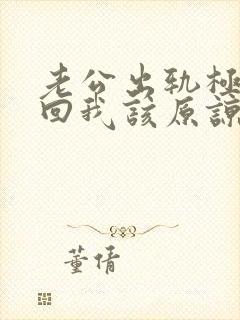 老公出轨极
回我该原谅
董倩